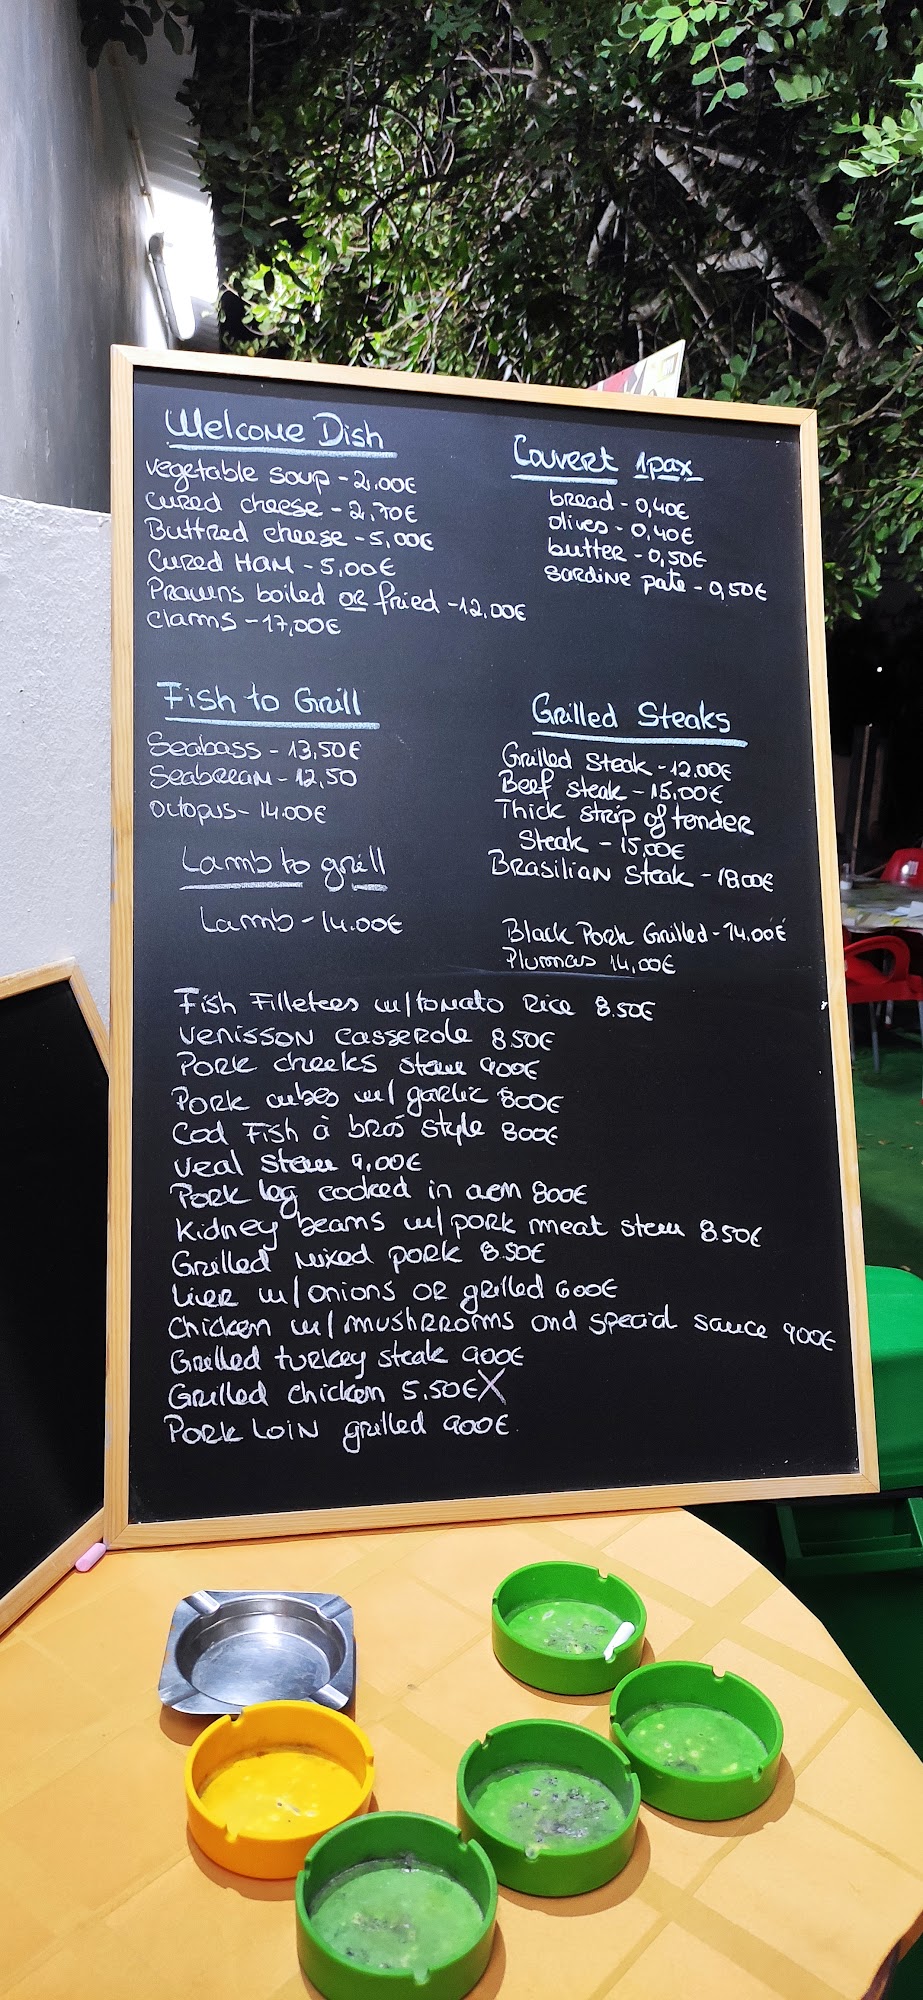 Welcome Dish
vegetable soup - 2.00€
Cured cheese - 2,70€
Buttred cheese - 5,00€
Cured HAM - 5,00€
Prawns boiled OR fried - 12,00€
Clams - 17,00€
Couvert 1pax
bread - 0,40€
olives - 0,40€
butter - 0,50€
sardine pate - 0,50€
Fish to Grill
Seabass - 13,50€
Seabream - 12,50
Octopus - 14.00€
Lamb to grill
Lamb - 14.00€
Grilled Steaks
Grilled Steak - 12.00€
Beef steak - 15,00€
Thick strip of tender
Steak - 15,00€
Brasilian Steak - 18,00€
Black Pork Grilled - 14.00€
Plumas 14,00€
Fish Filletees w/tomato Rice 8.50€
Venisson casserole 8.50€
Pork cheeks stew 900€
Pork cubes w/ garlic 800€
Cod Fish à brás style 800€
Veal stew 9,00€
Pork leg cooked in aem 800€
Kidney beams w/pork meat stew 8.50€
Grilled mixed pork 8.50€
Liver w/onions or grilled 600€
Chicken w/ mushrroms and special sauce 900€
Grilled turkey steak 900€
Grilled chicken 5.50€X
Pork Loin grilled 900€